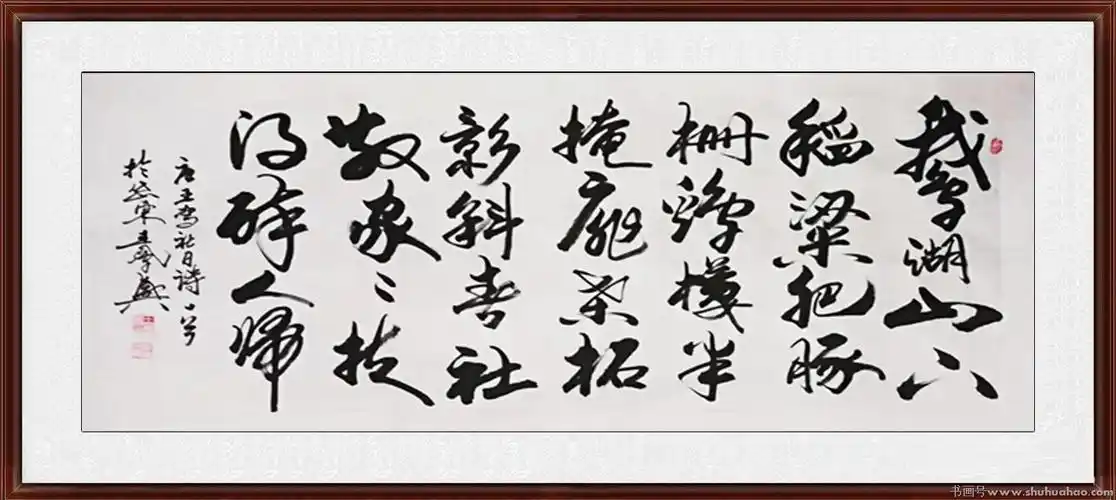 鵝湖山下
稻粱肥豚
栅鷄棲半
掩扉桑柘
影斜春社
散家〻扶
得醉人歸
唐王駕社日詩一首
於
书画号www.shuhuahao.com